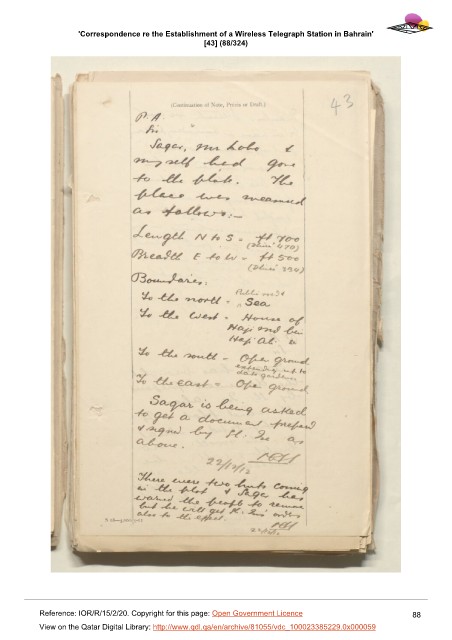 'Correspondence re the Establishment of a Wireless Telegraph Station in Bahrain'
[43] (88/324)
(Continuation of Note, Precis or Draft.)
43
P. A.
Sir
Sagar, Mr Lobo &
myself had gone
to the plot. The
place was measured
as follows:-
Length N to S = ft 700
Breadth E to W = ft 500
Boundaries:
To the north = Sea
To the west = House of
Haji
Haji Ali
To the south = Open ground
extending up to
date garden
To the east = Open ground
Sagar is being asked
to get a document prepared
& signed by Sh. Isa as
above.
22/12/12
There were two huts coming
in the plot & Sagar has
warned the people to remove
but he will get Sh. Isa's orders
also to the effect.
Reference: IOR/R/15/2/20. Copyright for this page: Open Government Licence
88
View on the Qatar Digital Library: http://www.qdl.qa/en/archive/81055/vdc_100023385229.0x000059